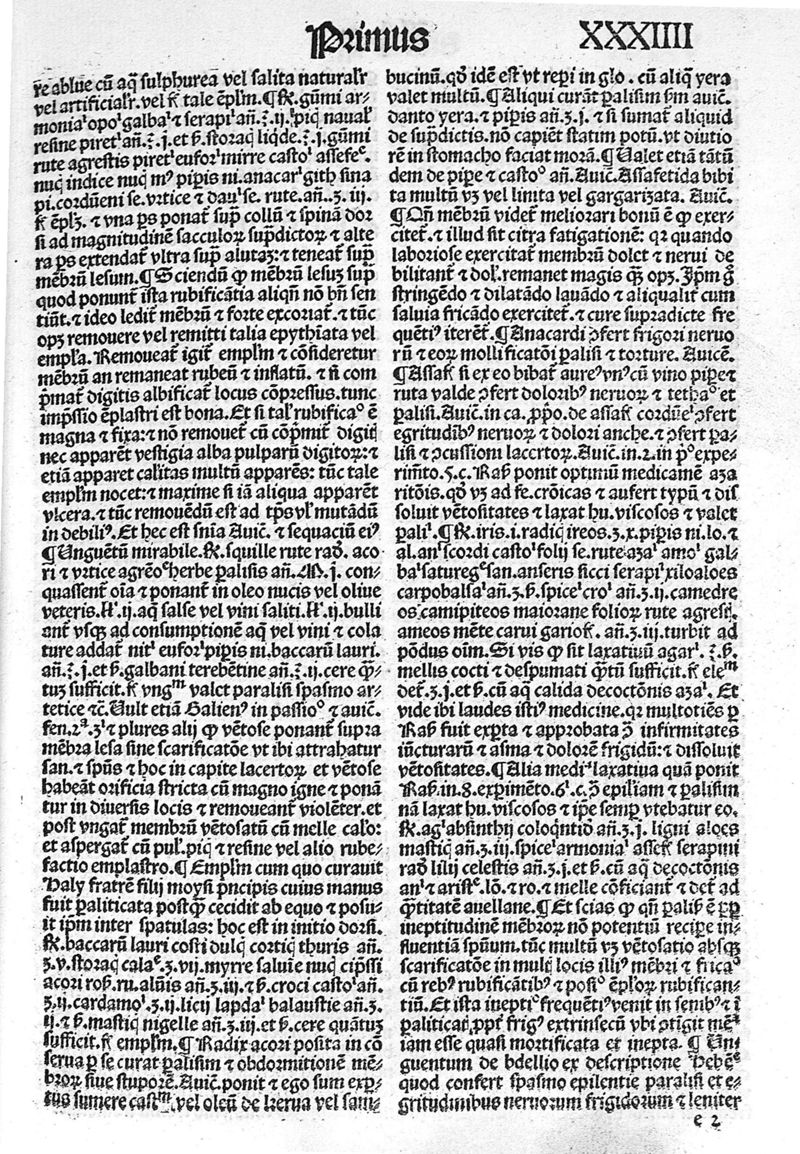 Primus
XXXIIII
re ablue cū aq̄ sulphurea vel salita naturalr̄
vel artificialr̄. vel f̄ tale ēpl̄m. ¶ ℞. gūmi ar-
monia¹ opo¹ galba¹ ⁊ serapi¹ an̄. ℥. ij. piq̄ naual̄
resine piret¹ an̄. ℥. j. et ħ. storaq̄ liq̄de. ℥. j. gūmi
rute agrestis piret¹ eufor¹ mirre casto¹ assefeᵉ.
nuq̄ indice nuq̄ mꝰ pip̄is ni. anacar¹ gith sina
pi. cordūeni se. vrtice ⁊ dau¹ se. rute. an̄. ʒ. iij.
f̄ ēpl̄ʒ. ⁊ vna ps ponat̄ sup̄ collū ⁊ spinā dor
si ad magnitudinē sacculoꝝ sup̄dictoꝝ ⁊ alte
ra ps extendat̄ vltra sup̄ alutaʒ: ⁊ teneat̄ sup̄
mēbrū lesum. ¶ Sciendū ꝙ mēbrū lesuʒ sup̄
quod ponunt̄ ista rubificātia aliqn̄ nō bn̄ sen
tiūt. ⁊ ideo ledit̄ mēbrū ⁊ forte excoriat̄. ⁊ tūc
opʒ remouere vel remitti talia epythīata vel
empl̄a. Remoueat̄ igit̄ empl̄m ⁊ cōsideretur
mēbrū an remaneat rubeū ⁊ inflatū. ⁊ si com
p̄mat̄ digitis albificat̄ locus cōpressus. tunc
imp̄ssio ēplastri est bona. Et si tal̄ rubificaᵒ ē
magna ⁊ fixa: ⁊ nō remouet̄ cū cōp̄mit̄ digitꝭ
nec apparēt vestigia alba pulparū digitoꝝ: ⁊
etiā apparet caliditas multū apparēs: tūc tale
empl̄m nocet: ⁊ maxime si iā aliqua apparēt
vlcera. ⁊ tūc remouēdū est ad tp̄s vl̄ mutādū
in debiliꝰ. Et hec est sn̄ia Auic̄. ⁊ sequaciū eiꝰ
¶ Unguētū mirabile. ℞. squille rute rad̄. aco
ri ⁊ vrtice agrēᵒ herbe paralisis an̄. M. j. con-
quassent̄ oīa ⁊ ponant̄ in oleo nucis vel oliue
veteris. ll¹. ij. aq̄ salse vel vini saliti. ll¹. ij. bulli
ant̄ vsqꝫ ad consumptionē aq̄ vel vini ⁊ cola
ture addat̄ nit¹ eufor¹ pip̄is ni. baccarū lauri.
an̄. ℥. j. et ħ. galbani terebētine an̄. ℥. ij. cere q̄ⁿ-
tuʒ sufficit. f̄ vngᵐ valet paralisi spasmo ar-
tetice ⁊c̄. Uult etiā Galienꝰ in passioᵒ ⁊ auic̄.
fen. 2ª. 3¹ ⁊ plures alij ꝙ vētose ponant̄ supra
mēbra lesa sine scarificatōe vt ibi attrahatur
san. ⁊ sp̄us ⁊ hoc in capite lacertoꝝ et vētose
habeāt orificia stricta cū magno igne ⁊ ponā
tur in diuersis locis ⁊ remoueant̄ violēter. et
post vngat̄ membrū vētosatū cū melle cal̄o:
et aspergat̄ cū pul̄. piq̄ ⁊ resine vel alio rube-
factio emplastro. ¶ Emplm̄ cum quo curauit
Haly fratrē filij moysi p̄ncipis cuius manus
fuit p̄aliticata postq̄ȝ cecidit ab equo ⁊ posu-
it ip̄m inter spatulas: hoc est in initio dorsi.
℞. baccarū lauri costi dulq̄ cortiq̄ thuris an̄.
ʒ. v. storaq̄ calaᵉ. ʒ. vij. myrre saluie nuq̄ cip̄ssi
acori rob̄. ru. alūis an̄. ʒ. iij. ⁊ ħ. croci casto¹ an̄.
ʒ. ij. cardamo¹. ʒ. ij. licij lapda¹ balaustie an̄. ʒ.
ij. ⁊ ħ. mastiq̄ nigelle an̄. ʒ. iij. et ħ. cere quātuʒ
sufficit. f̄ empl̄m. ¶ Radix acori posita in cō
serua p̄ se curat p̄alisim ⁊ obdormitionē mē-
broꝝ siue stuporē. Auic̄. ponit ⁊ ego sum exp̄-
tus sumere castᵐ. vel oleū de kerua vel sam-
bucinū. qd̄ idē est vt rep̄i in glo. cū aliq̄ yera
valet multū. ¶ Aliqui curāt p̄alisim ẜm auic̄.
danto yera. ⁊ pip̄is an̄. ʒ. j. ⁊ si sumat̄ aliquid
de sup̄dictis. nō capiēt statim potū. vt diutio
rē in stomacho faciat morā. ¶ Ualet etiā tātū
dem de pip̄e ⁊ castoᵒ an̄. Auic̄. Assafetida bibi
ta multū vʒ vel linita vel gargarizata. Auic̄.
¶ Qn̄ mēbrū videt̄ meliorari bonū ē ꝙ exer-
citet̄. ⁊ illud sit citra fatigationē: qꝛ quando
laboriose exercitat̄ membrū dolet ⁊ nerui de
bilitant̄ ⁊ dol̄. remanet magis q̄ȝ opʒ. Ip̄m g̊
stringēdo ⁊ dilatādo lauādo ⁊ aliqualit̄ cum
saluia fricādo exercitet̄. ⁊ cure supradicte fre
quēti iteret̄. ¶ Anacardi ꝯfert frigori neruo
rū ⁊ eoꝝ mollificatōi p̄alisi ⁊ torture. Auicē.
¶ Assaf̄ si ex eo bibat̄ aureꝰ vnꝰ cū vino pip̄e ⁊
ruta valde ꝯfert doloribꝰ neruoꝝ ⁊ tethaᵒ et
p̄alisi. Auic̄. in ca. p̄p̄o. de assaf̄. cordūe¹ ꝯfert
egritudībꝰ neruoꝝ ⁊ dolori anche. ⁊ ꝯfert pa-
lisi ⁊ ꝯcussioni lacertoꝝ. Auic̄. in. 2. in p̄ᵒ. expe-
rim̄to. 5. c. Raſ. ponit optimū medicamē aʒa
ritōis. qd̄ vʒ ad fe. crōicas ⁊ aufert typū ⁊ dis
soluit vētositates ⁊ laxat hu. viscosos ⁊ valet
p̄ali¹. ¶ ℞. iris. i. radiq̄ ireos. ʒ. x. pip̄is ni. lo. ⁊
al. an¹ scordi casto¹ folij se. rute aʒa¹ amo¹ gal-
ba¹ satureg̊ san. anseris sicci serapi¹ xiloaloes
carpobalsa¹ an̄. ʒ. ħ. spice¹ cro¹ an̄. ʒ. ij. camedre
os camipiteos maiorane folioꝝ rute agresti.
ameos mēte carui garioſ. an̄. ʒ. iij. turbit ad
pōdus oīm. Si vis ꝙ sit laxatiuū agar¹. ℥. ħ.
mellis cocti ⁊ despumati q̄ⁿtū sufficit. f̄ eleᵐ
det̄. ʒ. j. et ħ. cū aq̄ calida decoctōnis aʒa¹. Et
vide ibi laudes istiꝰ medicine. qꝛ multotiēs p̄
Raſ. fuit exp̄ta ⁊ approbata ꝯ̄ infirmitates
iūcturarū ⁊ asma ⁊ dolorē frigidū: ⁊ dissoluit
vētositates. ¶ Alia medi¹ laxatiua quā ponit
Raſ. in. 8. experimēto. 6¹. c. ꝯ̄ epiliam ⁊ p̄alisim
nā laxat hu. viscosos ⁊ ipse semp̄ vtebatur eo.
℞. ag¹ absinthij coloqntid̄ an̄. ʒ. j. ligni aloes
mastiq̄ an̄. ʒ. iij. spice¹ armonia¹ assef̄ serapini
rad̄ lilij celestis an̄. ʒ. j. et ħ. cū aq̄ decoctōnis
an¹ ⁊ aristeᵉ. lō. ⁊ ro. ⁊ melle cōficiant̄ ⁊ det̄ ad
q̄ⁿtitatē auellane. ¶ Et scias ꝙ qn̄ p̄alis̄ ē p̄p̄
ineptitudinē mēbroꝝ nō potentiū recipe in-
fluentiā sp̄uum. tūc multū vʒ vētosatio absqꝫ
scarificatōe in multꝭ locis illiꝰ mēbri ⁊ fricaᵒ
cū rebꝰ rubificātibꝰ ⁊ positᵒ ēpl̄oꝝ rubifican-
tiū. Et ista ineptiᵒ frequēti venit in senibꝰ ⁊ ī
p̄aliticatꝭ. p̄pt̄ frigꝰ extrinsecū vbi ꝯtigit mēᵐ
iam esse quasi mortificata et inepta. ¶ Un-
guentum de bdellio ex descriptione Hebēᵉ
quod confert spasmo epilentie paralisi et e-
gritudinibus neruorum frigidorum ⁊ leniter
e 2